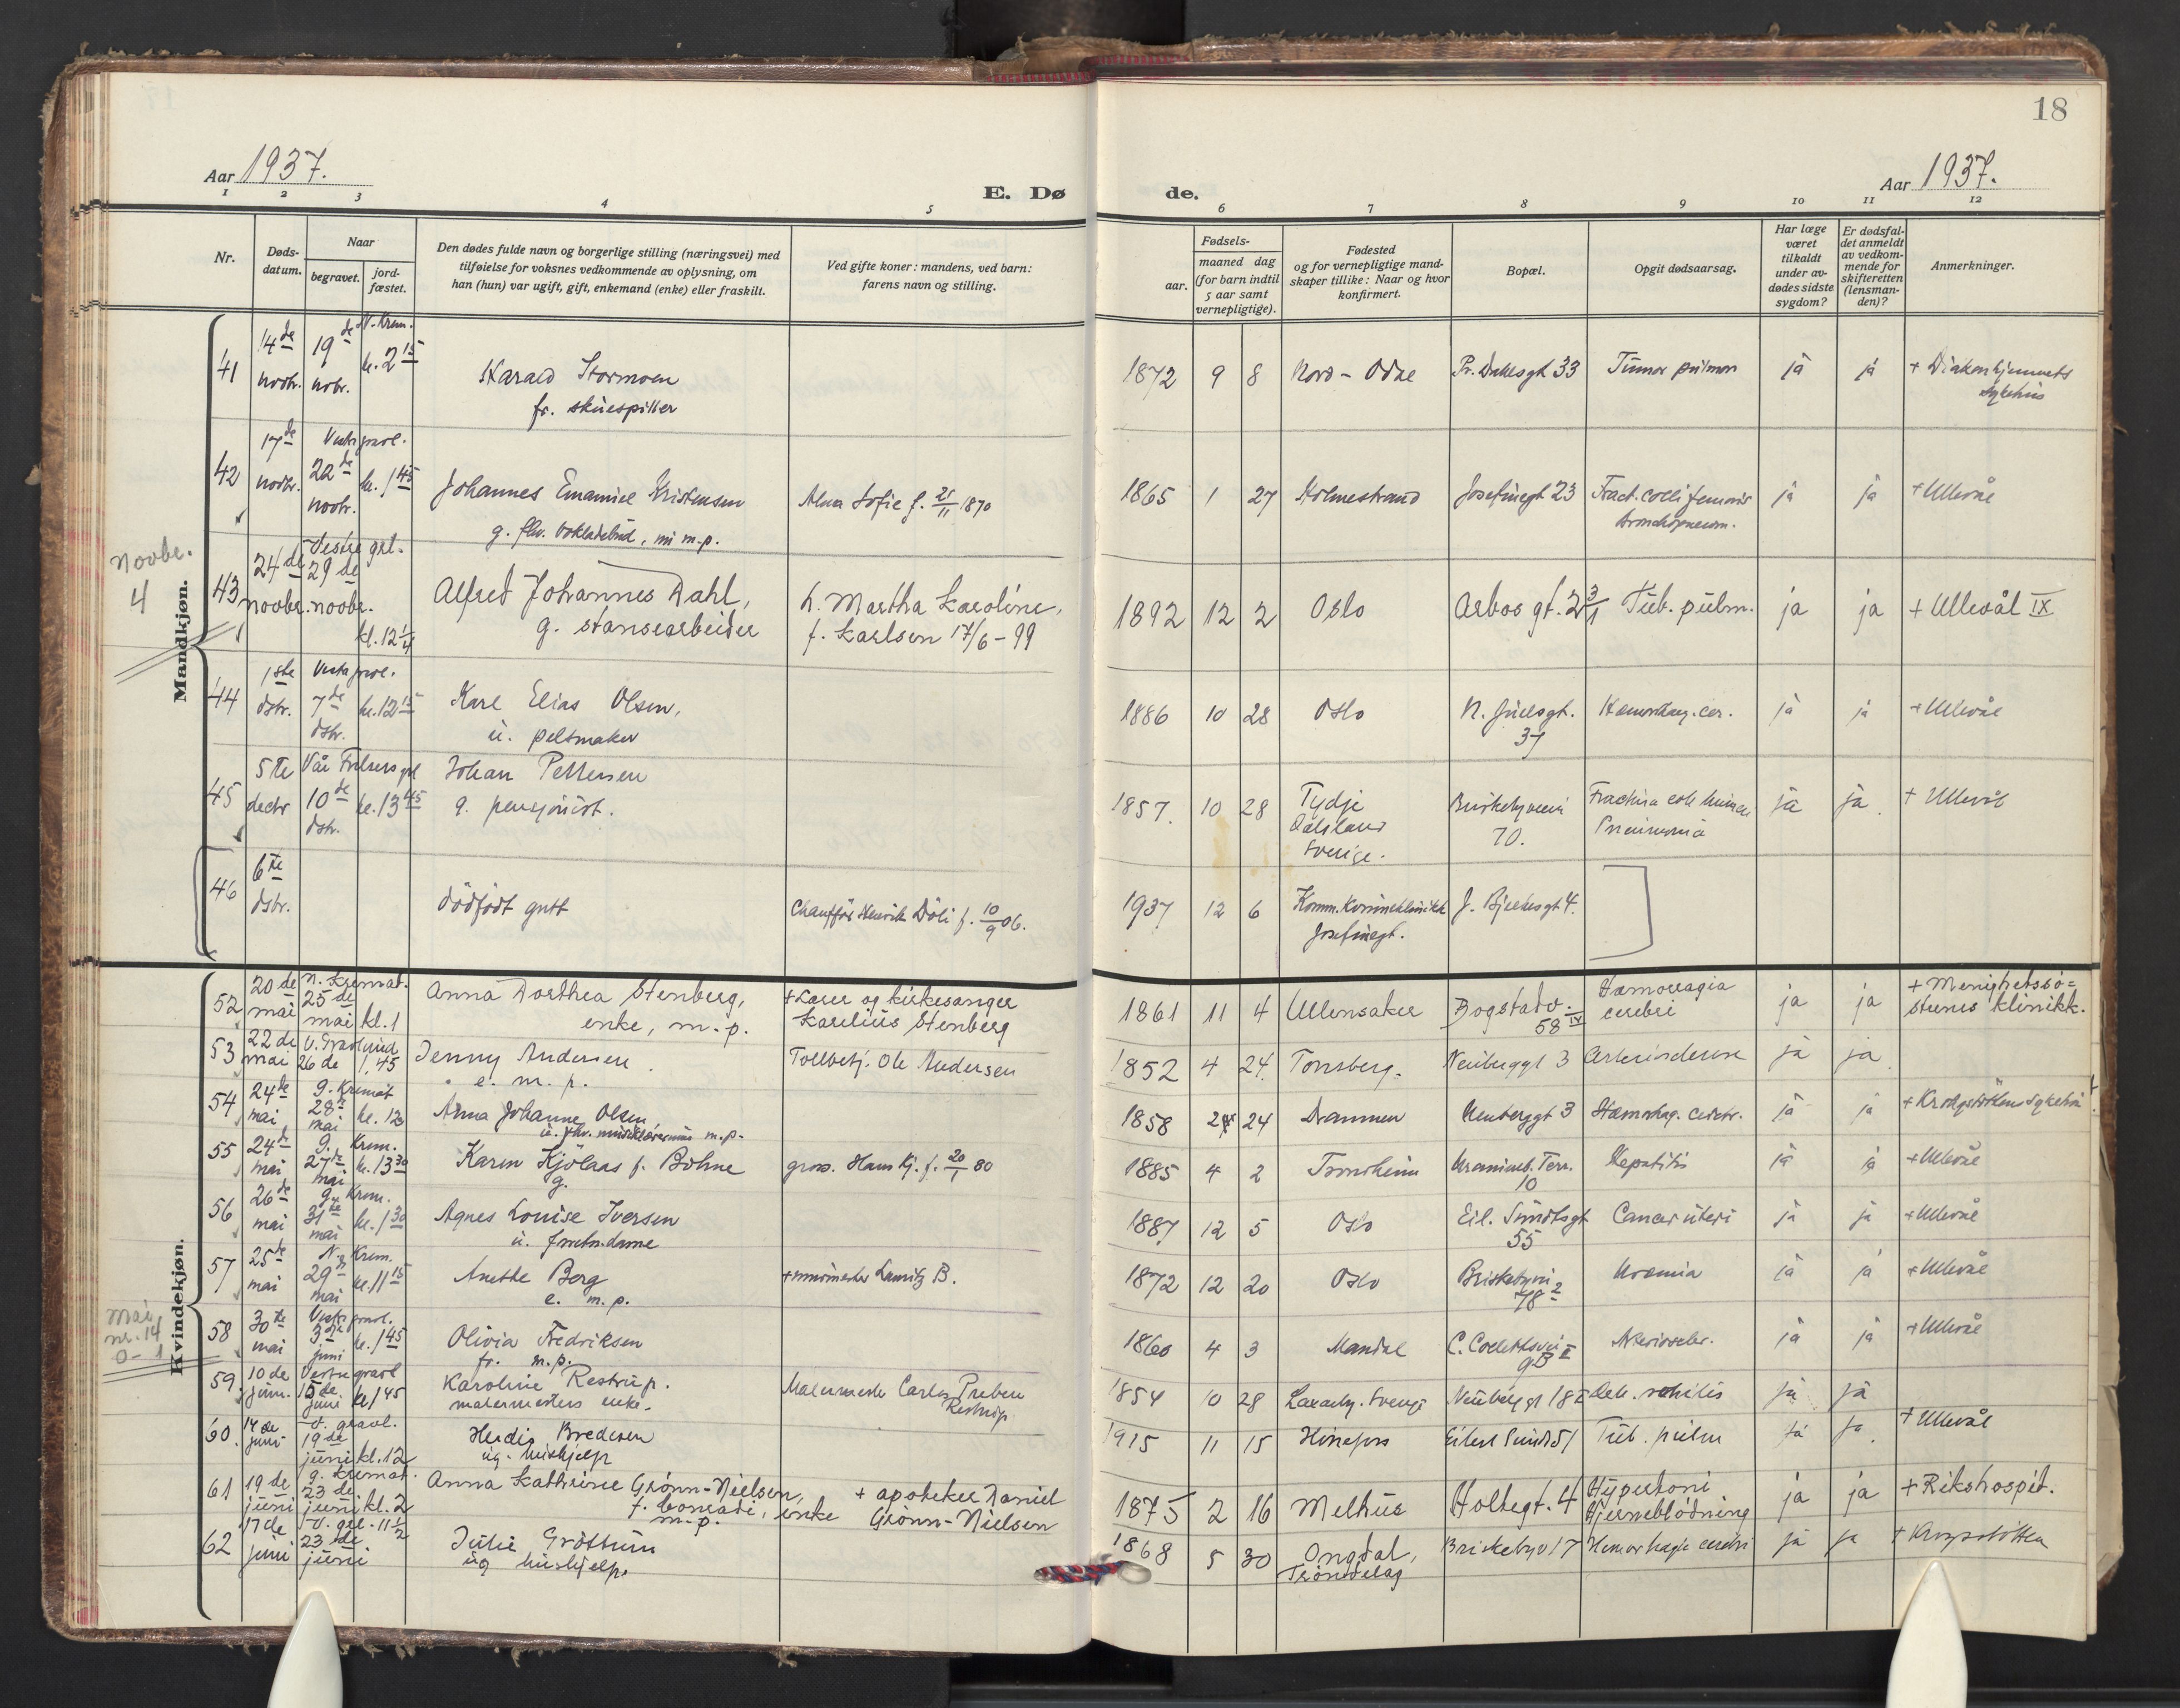 18
Aar 1937.
E. Døde.
Aar 1937.
1 2 3 4 5 6 7 8 9 10 11 12
Nr.
Døds-datum.
Naar
begravet.
jord-fæstet.
Den dødes fulde navn og borgerlige stilling (næringsvei) med
tilføielse for voksnes vedkommende av oplysning, om
han (hun) var ugift, gift, enkemand (enke) eller fraskilt.
Ved gifte koner: mandens, ved barn:
farens navn og stilling.
Fødsels-
aar. maaned dag
(for barn indtil
5 aar samt
vernepligtige).
Fødested
og for vernepligtige mand-
skaper tillike: Naar og hvor
konfirmert.
Bopæl.
Opgit dødsaarsag.
Har læge
været
tilkaldt
under av-
dødes sidste
sygdom?
Er dødsfal-
det anmeldt
av vedkom-
mende for
skifteretten
(lensman-
den)?
Anmerkninger.
Mandkjøn.
Novbr.
4
41 14de novbr. 19de novbr. N. Krem. kl. 2 15 Harald Stormoen 1872 9 8 Nord-Odal Pr. Dahlsgt 33 Tumor pulmon ja ja + Diakonhjemmets
fr. skuespiller sykehus
42 17de novbr. Vestre gravl. 22de novbr. kl. 1 45 Johannes Emanuel Kristensen Alma Sofie f. 25/11 1870 1865 1 27 Holmestrand Josefinegt 23 Fract. colli femoris ja ja + Ullevål
g. fhv. , m.p. Bronchopneum.
43 24de novbr. Vestre grl. 29de novbr. kl. 12 1/4 Alfred Johannes Dahl, h. Martha Karoline, 1892 12 2 Oslo Arbos gt. 2 3/1 Tub. pulm. ja ja + Ullevål IX
g. stansearbeider f. Karlsen 17/6-99
44 1ste dsbr. Vestre gravl. 7de dsbr. kl. 12 15 Karl Elias Olsen, 1886 10 28 Oslo N. Juelsgt. Hæmorrhag. cer. ja ja + Ullevål
u. peltsmaker 37
45 5te decbr Vår Frelsers grl 10de dsbr. kl. 13 45 Johan Pettersen 1857. 10 28 Tydje Briskebyveien Fractura coll. ja ja + Ullevål
g. pensjonist. Dalsland 70. Pneumonia
Sverige.
46 6te dsbr. dødfødt gutt Chauffør Henrik Döli f. 10/9 06. 1937 12 6 Komm. Kvinneklinikk J. Bjelkesgt 4.
Josefinegt.
Kvindekjøn.
Mai
nr. 14
0-1
52 20de mai N. Kremat. 25de mai kl. 1 Anna Dorthea Stenberg, + Lærer og kirkesanger 1861 11 4 Ullensaker Bogstadv. Hæmorragia ja ja + Menighetssø=
enke, m.p. Karelius Stenberg 58 IV cerebri strenes klinikk.
53 22de mai V. Gravlund 26de 1,45 Jenny Andersen Tollbetj. Ole Andersen 1852 4 24. Tønsberg. Neuberggt 3 Arteriosclerose ja ja
e. m.p.
54 24de mai G. Kremat 28de mai kl. 12 Anna Johanne Olsen 1858 2 24 Drammen Neuberggt 3 Hæmorhag. cerebr. ja ja + Krohgstötten sykehus
u. fhv. musiklærerinne m.p.
55 24de mai G. Krem. 27de mai kl. 13 30 Karen Kjölaas f. Bohne gros. Hans Kj. f. 20/1 80 1885 4 2 Trondheim Uranienb. Terr. Hepatitis ja ja + Ullevål
g. 10
56 26de mai G. Krem. 31te mai kl. 1 30 Agnes Louise Iversen 1887 12 5 Oslo Eil. Sundtsgt Cancer uteri ja ja + Ullevål
u. forretn.dame 55
57 25de mai N. Krem. 29de mai kl. 11 15 Anette Berg + murmester Lauritz B. 1872 12 20 Oslo Briskebyvn Uræmia ja ja + Ullevål
e. m.p. 78 2
58 30te mai Vestre gravl. 3dje juni kl. 1 45 Olivia Fredriksen 1860 4 3 Mandal C. Collettsvei ja ja + Ullevål
fr. m.p. 9B II
59 10de juni. Vestre gravl 15de juni kl 1 45 Karoline Restrup. Malermester Carl Preben 1854 10 28 Laxarby. Sverige Neuberggt 18 Deb. senilis ja ja
malermesters enke. Restrup
60 14de juni V. gravl. 19de juni kl. 12 Herdis Bredesen 1915 11 15 Eilert Sundts 51 Tub. pulm ja ja + Ullevål
ug. hushjelp
61 19de juni G. Kremat. 23de juni kl. 2 Anna Kathrine Grønn-Nielsen, + apoteker Daniel 1875 2 16 Melhus Holtegt. 4 Hypertoni ja ja + Rikshospit.
f. Conradi, enke m.p. Grønn-Nielsen Hjerneblødning
62 17de juni V. grl. 11 1/2 23de juni Julie Gröttum 1868 5 30 Ongdal, Briskebyv 17 Hemorhagia cerebri ja ja + Krogstötten
ug hushjelp. Trøndelag